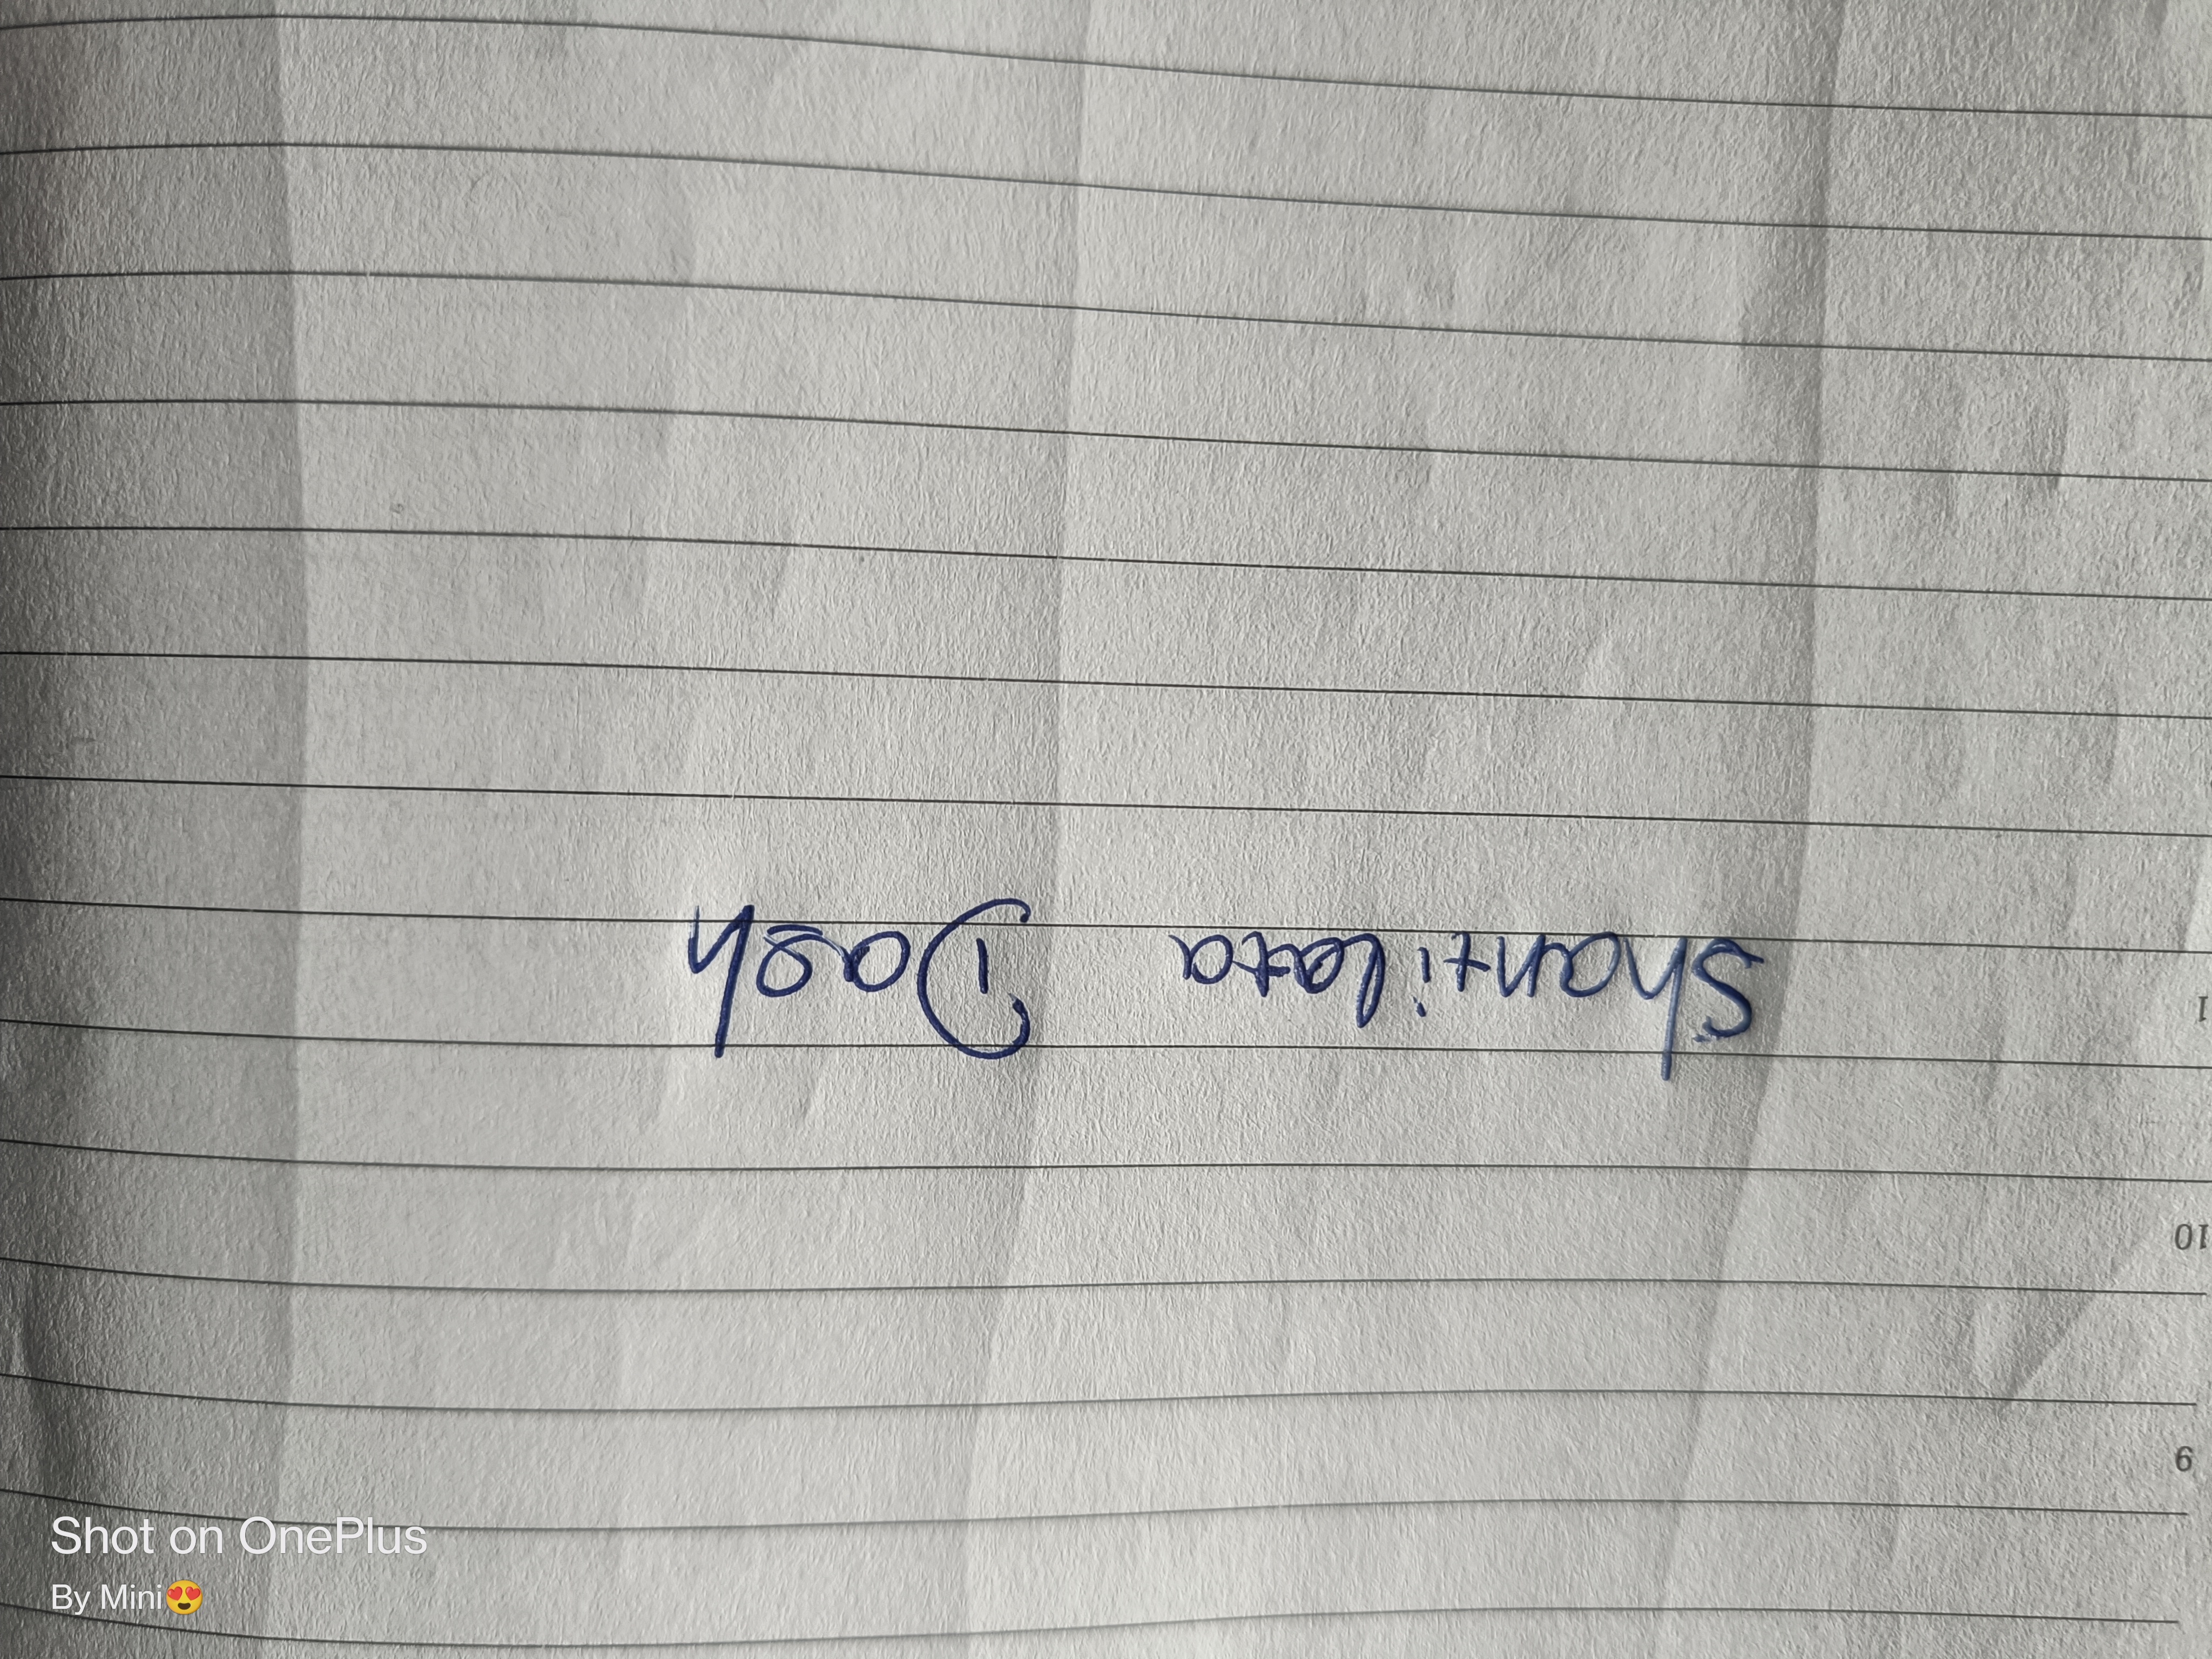 Shantilata Dash
1
10
9
Shot on OnePlus
By Mini😍